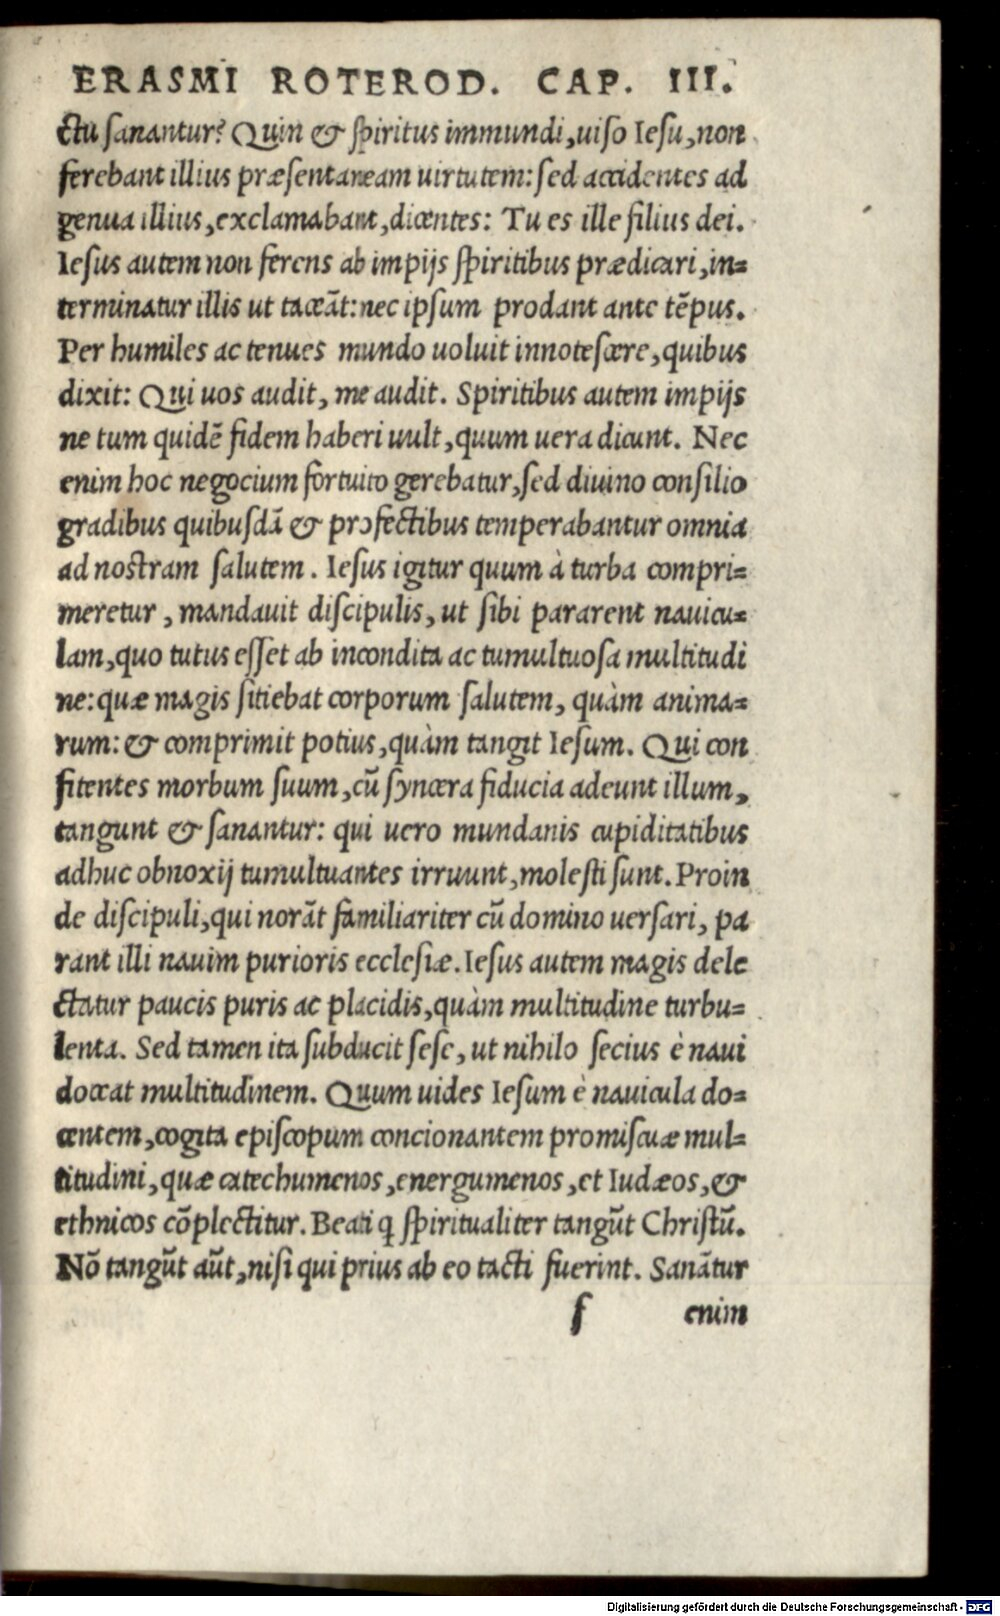 ERASMI ROTEROD. CAP. III.
ctu sanantur? Quin & spiritus immundi, uiso Iesu, non
ferebant illius præsentaneam uirtutem: sed accidentes ad
genua illius, exclamabant, dicentes: Tu es ille filius dei.
Iesus autem non ferens ab impijs spiritibus prædicari, in=
terminatur illis ut taceāt: nec ipsum prodant ante tēpus.
Per humiles ac tenues mundo uoluit innotescere, quibus
dixit: Qui uos audit, me audit. Spiritibus autem impijs
ne tum quidē fidem haberi uult, quum uera dicunt. Nec
enim hoc negocium fortuito gerebatur, sed diuino consilio
gradibus quibusdā & profectibus temperabantur omnia
ad nostram salutem. Iesus igitur quum à turba compri=
meretur, mandauit discipulis, ut sibi pararent nauicu=
lam, quo tutus esset ab incondita ac tumultuosa multitudi
ne: quæ magis sitiebat corporum salutem, quàm anima=
rum: & comprimit potius, quàm tangit Iesum. Qui con
fitentes morbum suum, cū syncera fiducia adeunt illum,
tangunt & sanantur: qui uero mundanis cupiditatibus
adhuc obnoxij tumultuantes irruunt, molesti sunt. Proin
de discipuli, qui norāt familiariter cū domino uersari, pa
rant illi nauim purioris ecclesiæ. Iesus autem magis dele
ctatur paucis puris ac placidis, quàm multitudine turbu=
lenta. Sed tamen ita subducit sese, ut nihilo secius è naui
doceat multitudinem. Quum uides Iesum è nauicula do=
centem, cogita episcopum concionantem promiscuæ mul=
titudini, quæ catechumenos, energumenos, et Iudæos, &
ethnicos cōplectitur. Beati q̃ spiritualiter tangūt Christū.
Nō tangūt aūt, nisi qui prius ab eo tacti fuerint. Sanātur
f enim
Digitalisierung gefördert durch die Deutsche Forschungsgemeinschaft - DFG